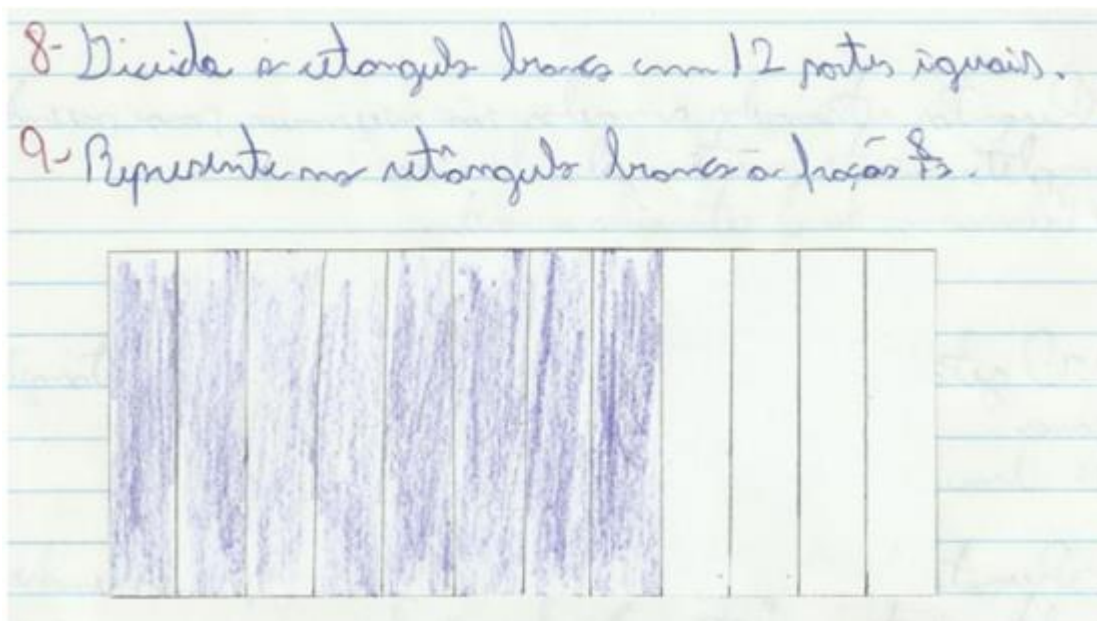 8- Divida o retângulo branco em 12 partes iguais.
9- Represente no retângulo branco a fração 8/12.